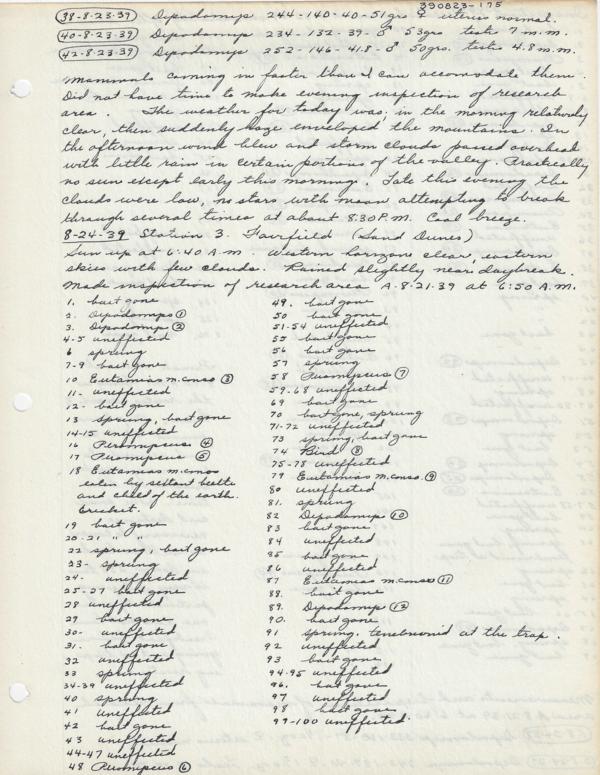 390823-175
(38-8.23.39) Dipodomys 244-140-40-51grs ♀ uterus normal.
(40-8.23.39) Dipodomys 234-132-39-♂ 53grs. testes 7 m.m.
(42-8.23.39) Dipodomys 252-146-41.8-♂ 50grs. testes 4.8 m.m.
Mammals coming in faster than I can accomodate them.
Did not have time to make evening inspection of research
area. The weather for today was; in the morning relatively
clear, then suddenly haze enveloped the mountains. In
the afternoon wind blew and storm clouds passed overhead
with little rain in certain portions of the valley. Practically
no sun except early this morning. Late this evening the
clouds were low, no stars with moon attempting to break
through several times at about 8:30 P.M. Cool breeze.
8-24-39 Station 3. Fairfield (Sand Dunes)
Sun up at 6:40 A.M. Western horizons clear, eastern
skies with few clouds. Rained slightly near daybreak.
Made inspection of research area A-8-21-39 at 6:50 A.M.
1. bait gone
2. Dipodomys ①
3. Dipodomys ②
4-5 uneffected
6 sprung
7-9 bait gone
10 Eutamias m. conso ③
11- uneffected
12- bait gone
13 sprung, bait gone
14-15 uneffected
16 Peromyscus ④
17 Peromyscus ⑤
18 Eutamias m. conso
eaten by beetle
and of the earth.
Cricket.
19 bait gone
20-21 " "
22 sprung, bait gone
23- sprung
24- uneffected
25-27 bait gone
28 uneffected
29 bait gone
30- uneffected
31. bait gone
32 uneffected
33 sprung
34-39 uneffected
40 sprung
41 uneffected
42 bait gone
43 uneffected
44-47 uneffected
48 Peromyscus ⑥
49. bait gone
50 bait gone
51-54 uneffected
55 bait gone
56 bait gone
57 sprung
58 Peromyscus ⑦
59-68 uneffected
69 bait gone
70 bait gone, sprung
71-72 uneffected
73 sprung, bait gone
74 Bird ⑧
75-78 uneffected
79 Eutamias m. conso. ⑨
80 uneffected
81. sprung
82 Dipodomys ⑩
83 bait gone
84 uneffected
85 bait gone
86 uneffected
87 Eutamias m. conso ⑪
88. bait gone
89. Dipodomys ⑫
90. bait gone
91 sprung. tenebrionid at the trap.
92 uneffected
93 bait gone
94-95 uneffected
96. bait gone
97 uneffected
98 bait gone
99-100 uneffected.